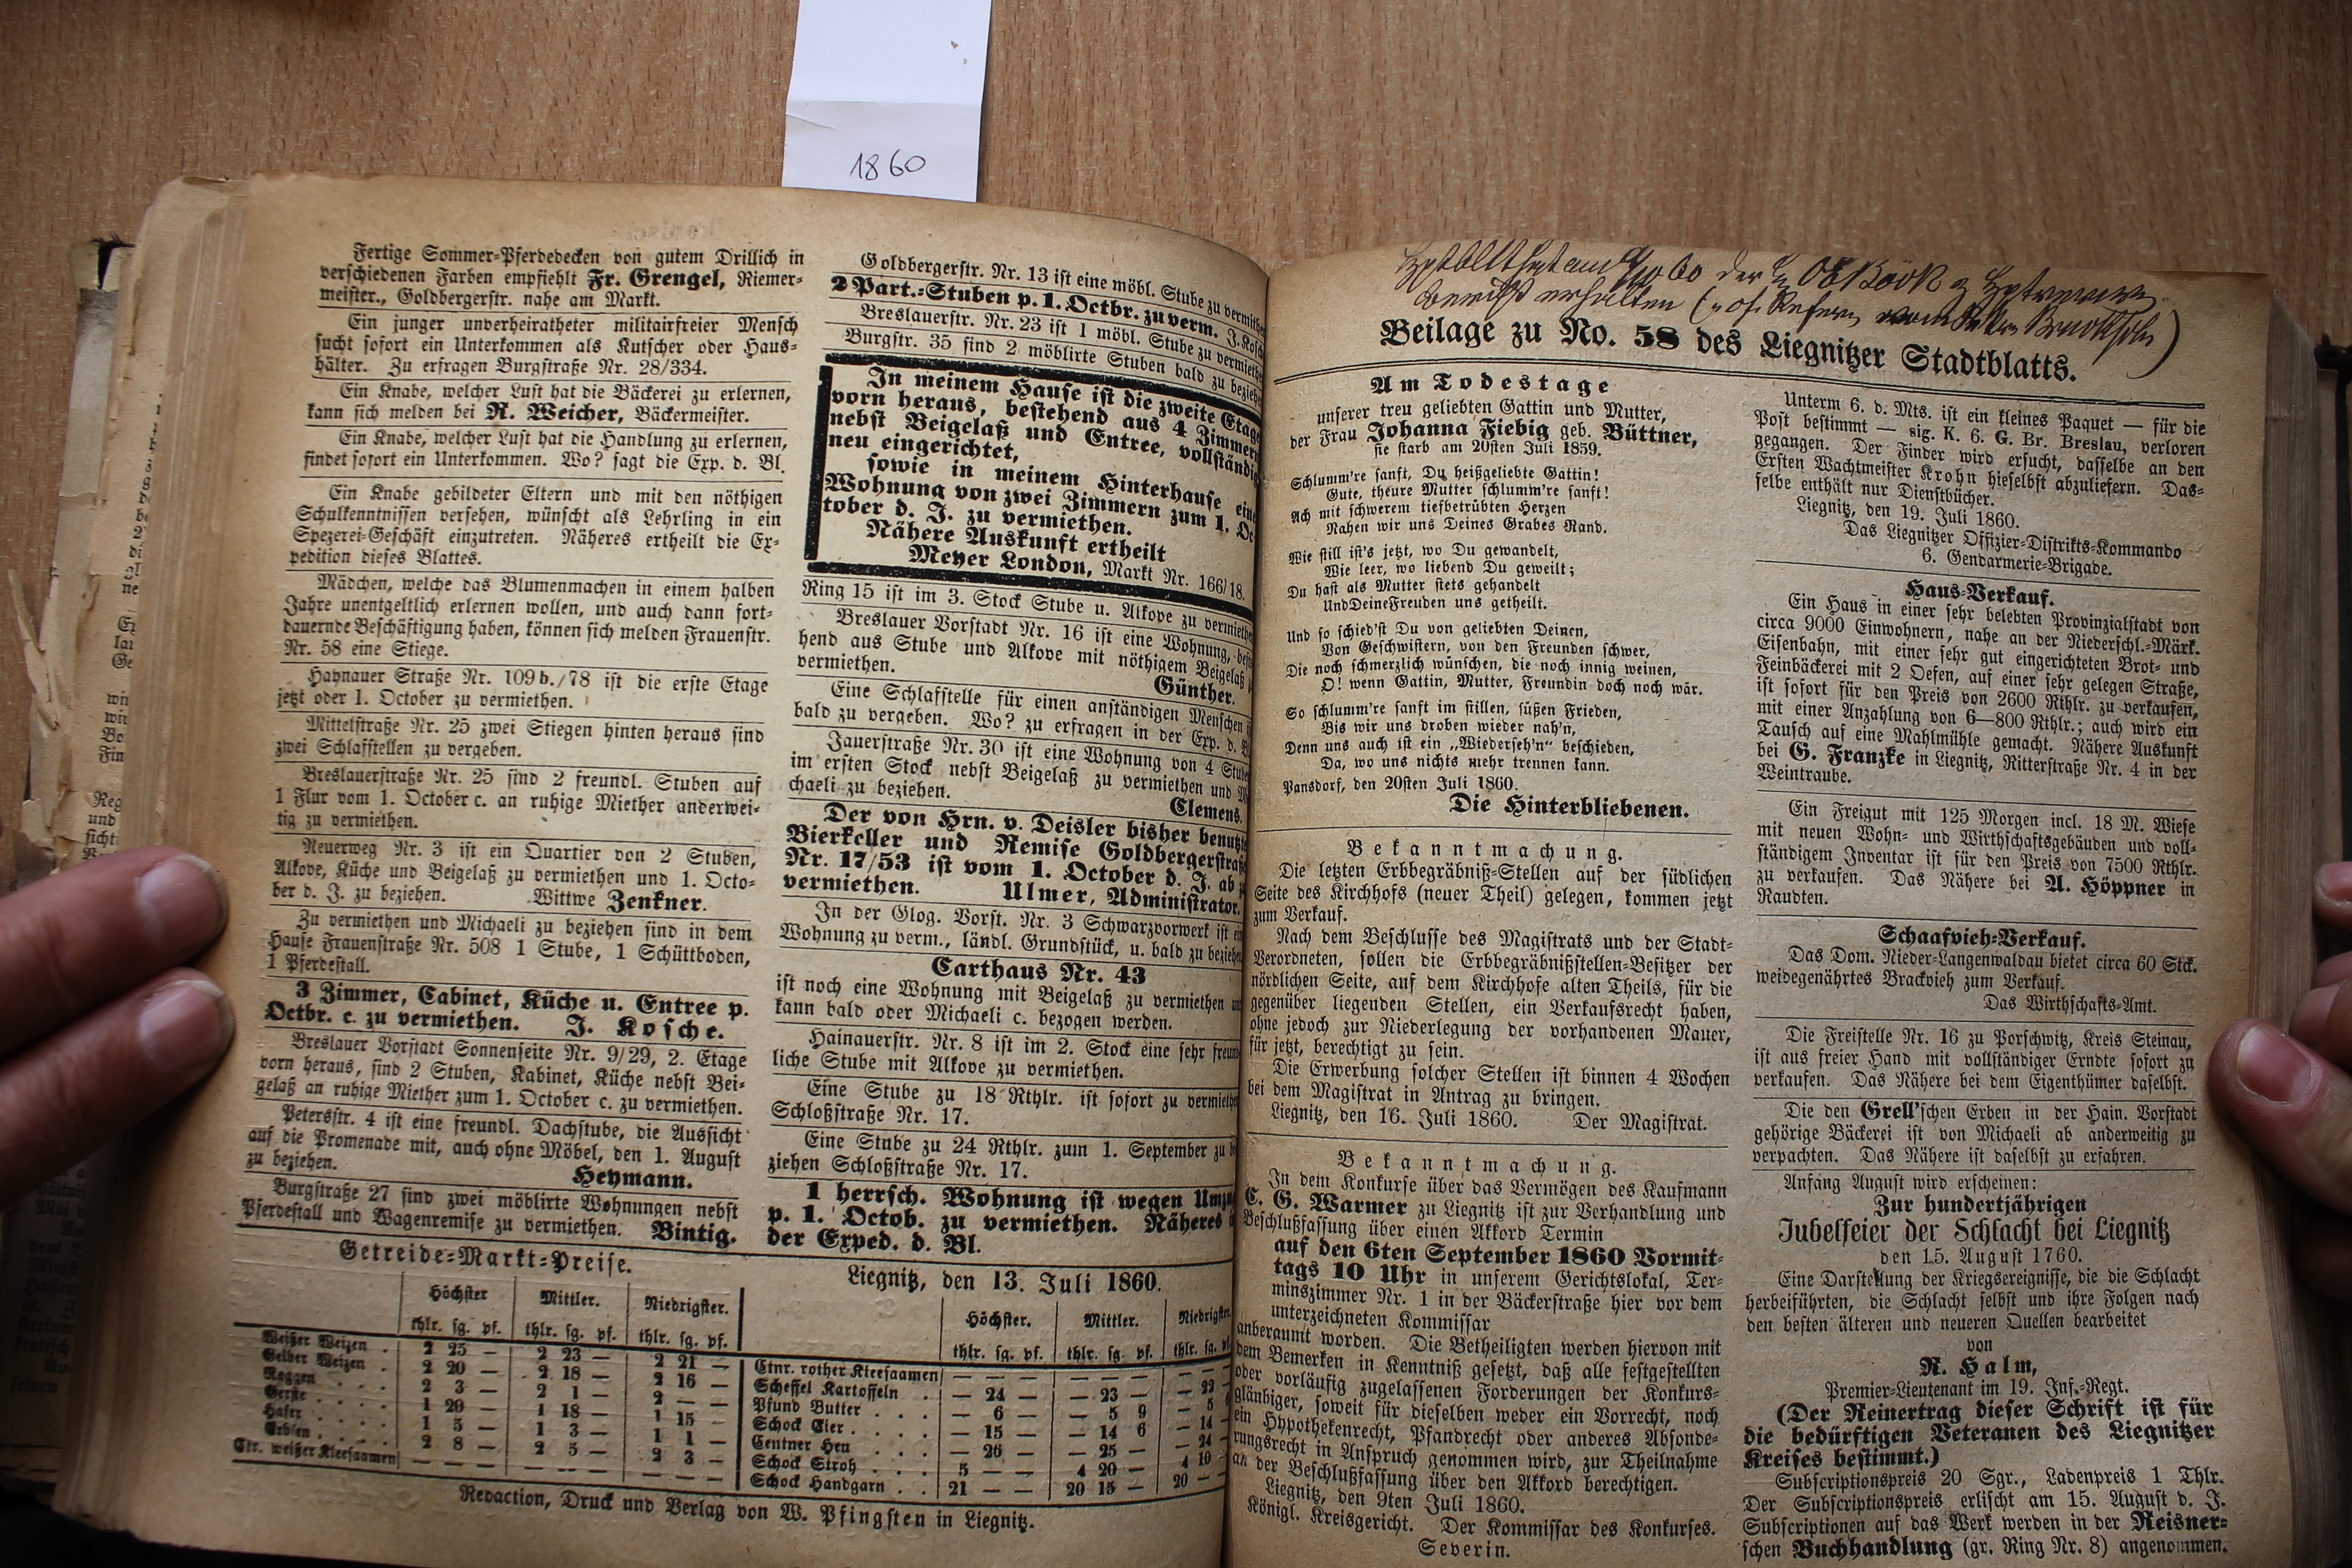 1860
Fertige Sommer-Pferdedecken von gutem Drillich in
verschiedenen Farben empfiehlt Fr. Grengel, Riemer-
meister., Goldbergerstr. nahe am Markt.
Ein junger unverheiratheter militairfreier Mensch
sucht sofort ein Unterkommen als Kutscher oder Haus-
hälter. Zu erfragen Burgstraße Nr. 28/334.
Ein Knabe, welcher Lust hat die Bäckerei zu erlernen,
kann sich melden bei R. Weicher, Bäckermeister.
Ein Knabe, welcher Lust hat die Handlung zu erlernen,
findet sofort ein Unterkommen. Wo? sagt die Exp. d. Bl.
Ein Knabe gebildeter Eltern und mit den nöthigen
Schulkenntnissen versehen, wünscht als Lehrling in ein
Spezerei-Geschäft einzutreten. Näheres ertheilt die Ex-
pedition dieses Blattes.
Mädchen, welche das Blumenmachen in einem halben
Jahre unentgeltlich erlernen wollen, und auch dann fort-
dauernde Beschäftigung haben, können sich melden Frauenstr.
Nr. 58 eine Stiege.
Haynauer Straße Nr. 109b./78 ist die erste Etage
jetzt oder 1. October zu vermiethen.
Mittelstraße Nr. 25 zwei Stiegen hinten heraus sind
zwei Schlafstellen zu vergeben.
Breslauerstraße Nr. 25 sind 2 freundl. Stuben auf
1 Flur vom 1. October c. an ruhige Miether anderwei-
tig zu vermiethen.
Neuerweg Nr. 3 ist ein Quartier von 2 Stuben,
Alkove, Küche und Beigelaß zu vermiethen und 1. Octo-
ber d. J. zu beziehen. Wittwe Zenkner.
Zu vermiethen und Michaeli zu beziehen sind in dem
Hause Frauenstraße Nr. 508 1 Stube, 1 Schüttboden,
1 Pferdestall.
3 Zimmer, Cabinet, Küche u. Entree p.
Octbr. c. zu vermiethen. J. Kosche.
Breslauer Vorstadt Sonnenseite Nr. 9/29, 2. Etage
vorn heraus, sind 2 Stuben, Kabinet, Küche nebst Bei-
gelaß an ruhige Miether zum 1. October c. zu vermiethen.
Petersstr. 4 ist eine freundl. Dachstube, die Aussicht
auf die Promenade mit, auch ohne Möbel, den 1. August
zu beziehen. Heymann.
Burgstraße 27 sind zwei möblirte Wohnungen nebst
Pferdestall und Wagenremise zu vermiethen. Bintig.
Goldbergerstr. Nr. 13 ist eine möbl. Stube zu vermiethen
2 Part.-Stuben p. 1. Octbr. zu verm. J. Kosch
Breslauerstr. Nr. 23 ist 1 möbl. Stube zu vermieth
Burgstr. 35 sind 2 möblirte Stuben bald zu beziehe
In meinem Hause ist die zweite Etage
vorn heraus, bestehend aus 4 Zimmern
nebst Beigelaß und Entree, vollständig
neu eingerichtet,
sowie in meinem Hinterhause eine
Wohnung von zwei Zimmern zum 1. Oc
tober d. J. zu vermiethen.
Nähere Auskunft ertheilt
Meyer London, Markt Nr. 166/18.
Ring 15 ist im 3. Stock Stube u. Alkove zu vermieth
Breslauer Vorstadt Nr. 16 ist eine Wohnung, beste
hend aus Stube und Alkove mit nöthigem Beigelaß
vermiethen. Günther.
Eine Schlafstelle für einen anständigen Menschen
bald zu vergeben. Wo? zu erfragen in der Exp. d.
Jauerstraße Nr. 30 ist eine Wohnung von 4 Stube
im ersten Stock nebst Beigelaß zu vermiethen und
chaeli zu beziehen. Clemens.
Der von Hrn. v. Deisler bisher benutzte
Bierkeller und Remise Goldbergerstraße
Nr. 17/53 ist vom 1. October d. J. ab
vermiethen. Ulmer, Administrator.
In der Glog. Vorst. Nr. 3 Schwarzvorwerk ist
Wohnung zu verm., ländl. Grundstück, u. bald zu beziehe
Carthaus Nr. 43
ist noch eine Wohnung mit Beigelaß zu vermiethen
kann bald oder Michaeli c. bezogen werden.
Hainauerstr. Nr. 8 ist im 2. Stock eine sehr freund
liche Stube mit Alkove zu vermiethen.
Eine Stube zu 18 Rthlr. ist sofort zu vermiethe
Schloßstraße Nr. 17.
Eine Stube zu 24 Rthlr. zum 1. September zu
ziehen Schloßstraße Nr. 17.
1 herrsch. Wohnung ist wegen Umzu
p. 1. Octob. zu vermiethen. Näheres
der Exped. d. Bl.
Getreide-Markt-Preise. Liegnitz, den 13. Juli 1860.
Höchster Mittler. Niedrigster. Höchster. Mittler. Niedrigster.
thlr. sg. pf. thlr. sg. pf. thlr. sg. pf. thlr. sg. pf. thlr. sg. pf. thlr. sg.
Weißer Weizen . 2 25 — 2 23 — 2 21 — Ctnr. rother Kleesaamen — — — — — — — —
Gelber Weizen . 2 20 — 2 18 — 2 16 — Scheffel Kartoffeln . — 24 — — 23 — — 22
Roggen . . . 2 3 — 2 1 — 2 — — Pfund Butter . . . — 6 — — 5 9 — 5
Gerste . . . 1 20 — 1 18 — 1 15 — Schock Eier . . . . — 15 — — 14 6 — 14
Hafer . . . . 1 5 — 1 3 — 1 1 — Centner Heu . . . — 26 — — 25 — — 24
Erbsen . . . . 2 8 — 2 5 — 2 3 — Schock Stroh . . . 5 — — 4 20 — 4 10
Ctr. weißer Kleesaamen — — — — — — — — — Schock Handgarn . . 21 — — 20 15 — 20 —
Redaction, Druck und Verlag von W. Pfingsten in Liegnitz.
Beilage zu No. 58 des Liegnitzer Stadtblatts.
Am Todestage
unserer treu geliebten Gattin und Mutter,
der Frau Johanna Fiebig geb. Büttner,
sie starb am 20sten Juli 1859.
Schlumm're sanft, Du heißgeliebte Gattin!
Gute, theure Mutter schlumm're sanft!
Ach mit schwerem tiefbetrübten Herzen
Nahen wir uns Deines Grabes Rand.
Wie still ist's jetzt, wo Du gewandelt,
Wie leer, wo liebend Du geweilt;
Du hast als Mutter stets gehandelt
Und Deine Freuden uns getheilt.
Und so schied'st Du von geliebten Deinen,
Von Geschwistern, von den Freunden schwer,
Die noch schmerzlich wünschen, die noch innig weinen,
O! wenn Gattin, Mutter, Freundin doch noch wär.
So schlumm're sanft im stillen, süßen Frieden,
Bis wir uns droben wieder nah'n,
Denn uns auch ist ein „Wiederseh'n“ beschieden,
Da, wo uns nichts mehr trennen kann.
Pansdorf, den 20sten Juli 1860.
Die Hinterbliebenen.
Bekanntmachung.
Die letzten Erbbegräbniß-Stellen auf der südlichen
Seite des Kirchhofs (neuer Theil) gelegen, kommen jetzt
zum Verkauf.
Nach dem Beschlusse des Magistrats und der Stadt-
Verordneten, sollen die Erbbegräbnißstellen-Besitzer der
nördlichen Seite, auf dem Kirchhofe alten Theils, für die
gegenüber liegenden Stellen, ein Verkaufsrecht haben,
ohne jedoch zur Niederlegung der vorhandenen Mauer,
für jetzt, berechtigt zu sein.
Die Erwerbung solcher Stellen ist binnen 4 Wochen
bei dem Magistrat in Antrag zu bringen.
Liegnitz, den 16. Juli 1860. Der Magistrat.
Bekanntmachung.
In dem Konkurse über das Vermögen des Kaufmann
C. G. Warmer zu Liegnitz ist zur Verhandlung und
Beschlußfassung über einen Akkord Termin
auf den 6ten September 1860 Vormit-
tags 10 Uhr in unserem Gerichtslokal, Ter-
minszimmer Nr. 1 in der Bäckerstraße hier vor dem
unterzeichneten Kommissar
anberaumt worden. Die Betheiligten werden hiervon mit
dem Bemerken in Kenntniß gesetzt, daß alle festgestellten
oder vorläufig zugelassenen Forderungen der Konkurs-
gläubiger, soweit für dieselben weder ein Vorrecht, noch
ein Hypothekenrecht, Pfandrecht oder anderes Absonde-
rungsrecht in Anspruch genommen wird, zur Theilnahme
an der Beschlußfassung über den Akkord berechtigen.
Liegnitz, den 9ten Juli 1860.
Königl. Kreisgericht. Der Kommissar des Konkurses.
Severin.
Unterm 6. d. Mts. ist ein kleines Paquet — für die
Post bestimmt — sig. K. 6. G. Br. Breslau, verloren
gegangen. Der Finder wird ersucht, dasselbe an den
Ersten Wachtmeister Krohn hieselbst abzuliefern. Das-
selbe enthält nur Dienstbücher.
Liegnitz, den 19. Juli 1860.
Das Liegnitzer Offizier-Distrikts-Kommando
6. Gendarmerie-Brigade.
Haus-Verkauf.
Ein Haus in einer sehr belebten Provinzialstadt von
circa 9000 Einwohnern, nahe an der Niederschl.-Märk.
Eisenbahn, mit einer sehr gut eingerichteten Brot- und
Feinbäckerei mit 2 Oefen, auf einer sehr gelegen Straße,
ist sofort für den Preis von 2600 Rthlr. zu verkaufen,
mit einer Anzahlung von 6—800 Rthlr.; auch wird ein
Tausch auf eine Mahlmühle gemacht. Nähere Auskunft
bei G. Franzke in Liegnitz, Ritterstraße Nr. 4 in der
Weintraube.
Ein Freigut mit 125 Morgen incl. 18 M. Wiese
mit neuen Wohn- und Wirthschaftsgebäuden und voll-
ständigem Inventar ist für den Preis von 7500 Rthlr.
zu verkaufen. Das Nähere bei A. Höppner in
Raudten.
Schaafvieh-Verkauf.
Das Dom. Nieder-Langenwaldau bietet circa 60 Stck.
weidegenährtes Brackvieh zum Verkauf.
Das Wirthschafts-Amt.
Die Freistelle Nr. 16 zu Porschwitz, Kreis Steinau,
ist aus freier Hand mit vollständiger Erndte sofort zu
verkaufen. Das Nähere bei dem Eigenthümer daselbst.
Die den Grell'schen Erben in der Hain. Vorstadt
gehörige Bäckerei ist von Michaeli ab anderweitig zu
verpachten. Das Nähere ist daselbst zu erfahren.
Anfang August wird erscheinen:
Zur hundertjährigen
Jubelfeier der Schlacht bei Liegnitz
den 15. August 1760.
Eine Darstellung der Kriegsereignisse, die die Schlacht
herbeiführten, die Schlacht selbst und ihre Folgen nach
den besten älteren und neueren Quellen bearbeitet
von
R. Halm,
Premier-Lieutenant im 19. Inf.-Regt.
(Der Reinertrag dieser Schrift ist für
die bedürftigen Veteranen des Liegnitzer
Kreises bestimmt.)
Subscriptionspreis 20 Sgr., Ladenpreis 1 Thlr.
Der Subscriptionspreis erlischt am 15. August d. J.
Subscriptionen auf das Werk werden in der Reisner-
schen Buchhandlung (gr. Ring Nr. 8) angenommen.